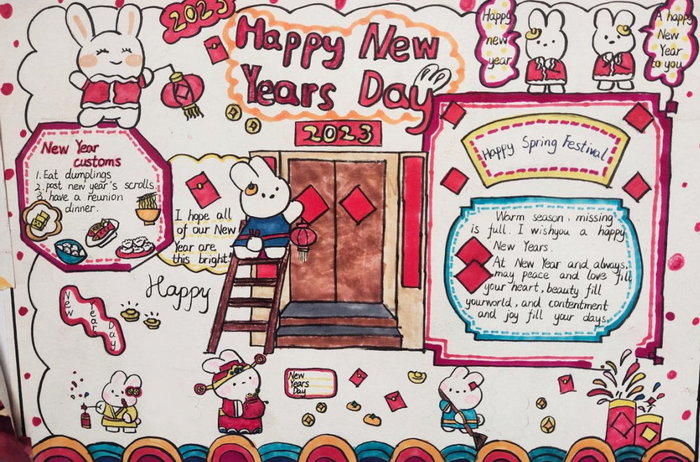 2023
Happy New
Years Day
2023
Happy
new
year
A happy
New
Year
to you
New Year
customs
1. Eat dumplings
2. post new year's scrolls
3. have a reunion
dinner.
I hope all
of our New
Year are
this bright!
Happy
New
Year
Day
Happy Spring Festival
Warm season, missing
is full. I wishyou a happy
New Years.
At New Year and always,
may peace and love fill
your heart, beauty fill
yourworld, and contentment
and joy fill your days.
New
Years
Day